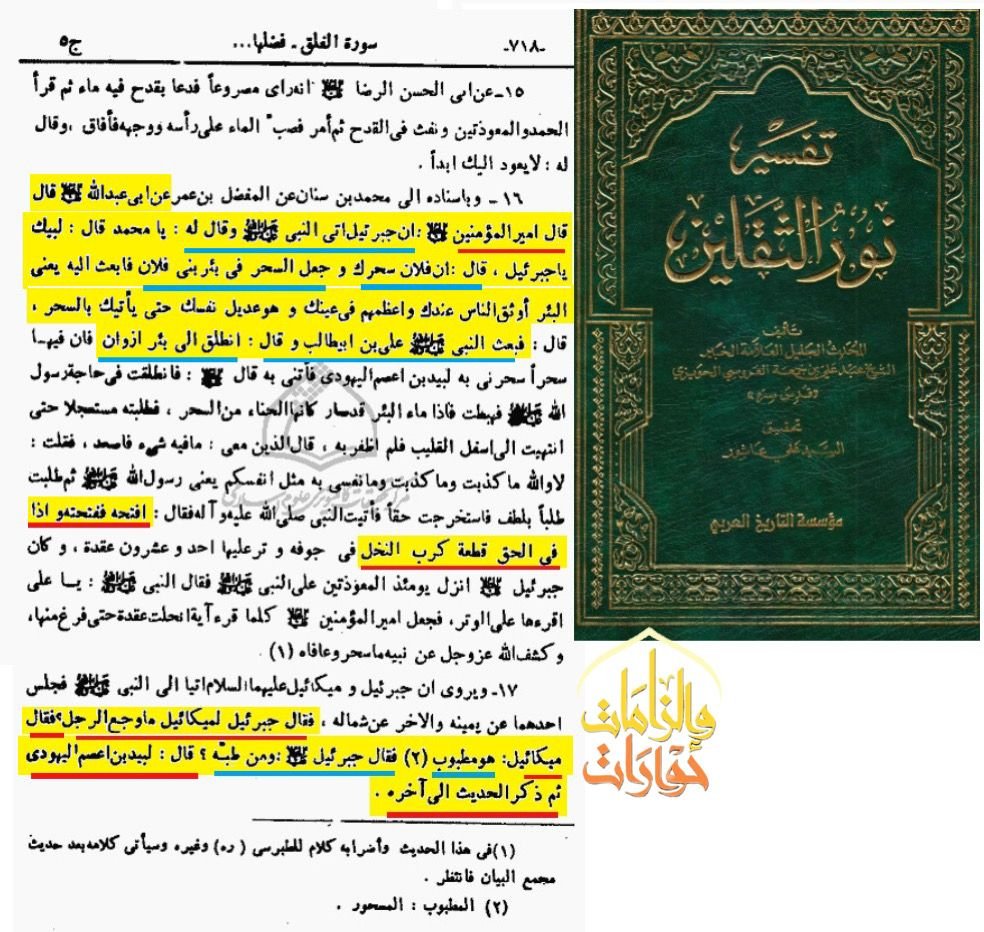 -٧١٨-
سورة الفلق - فضلها...
ج٥
١٥-عن ابى الحسن الرضا ﵇ انه رأى مصروعاً فدعا بقدح فيه ماء ثم قرأ
الحمد والمعوذتين ونفث فى القدح ثم أمر فصب الماء على رأسه ووجهه فأفاق ، وقال
له : لايعود اليك ابداً .
١٦ - وباسناده الى محمد بن سنان عن المفضل بن عمر عن ابى عبدالله ﵇ قال
قال امير المؤمنين ﵇ : ان جبرئيل اتى النبى ﷺ وقال له : يا محمد قال : لبيك
ياجبرئيل ، قال : ان فلان سحرك و جعل السحر فى بئر بنى فلان فابعث اليه يعنى
البئر أوثق الناس عندك واعظمهم فى عينك و هو عديل نفسك حتى يأتيك بالسحر ،
قال : فبعث النبى ﷺ على بن ابيطالب و قال : انطلق الى بئر ازوان فان فيها
سحراً سحرنى به لبيد بن اعصم اليهودى فأتنى به قال ﵇ : فانطلقت فى حاجة رسول
الله ﷺ فهبطت فاذا ماء البئر قد صار كانها الحناء من السحر ، فطلبته مستعجلا حتى
انتهيت الى اسفل القليب فلم اظفر به ، قال الذين معى : مافيه شىء فاصعد ، فقلت :
لا والله ما كذبت وما كذبت وما نفسى به مثل انفسكم يعنى رسول الله ﷺ ثم طلبت
طلباً بلطف فاستخرجت حقاً فأتيت النبى صلى الله عليه وآله فقال : افتحه ففتحته و اذا
فى الحق قطعة كرب النخل فى جوفه و تر عليها احد و عشرون عقدة ، و كان
جبرئيل ﵇ انزل يومئذ المعوذتين على النبى ﷺ فقال النبى ﷺ : يا على
اقرءها على الوتر ، فجعل امير المؤمنين ﵇ كلما قرء آية انحلت عقدة حتى فرغ منها،
و كشف الله عزوجل عن نبيه ما سحر و عافاه (١)
١٧- ويروى ان جبرئيل و ميكائيل عليهما السلام اتيا الى النبى ﷺ فجلس
احدهما عن يمينه والآخر عن شماله ، فقال جبرئيل لميكائيل ما وجع الرجل ؟ فقال
ميكائيل : هو مطبوب (٢) فقال جبرئيل ﵇ : ومن طبّه ؟ قال : لبيد بن اعصم اليهودى
ثم ذكر الحديث الى آخره .
(١) فى هذا الحديث وأضرابه كلام للطبرسى (ره) وغيره وسيأتى كلامه بعد حديث
مجمع البيان فانتظر .
(٢) المطبوب : المسحور .
تفسير
نور الثقلين
تأليف
المحدث الجليل العلامة الخبير
الشيخ عبد علي بن جمعة العروسي الحويزي
«قدس سره»
تحقيق
السيد علي عاشور
مؤسسة التاريخ العربي
والزامات
حوارات